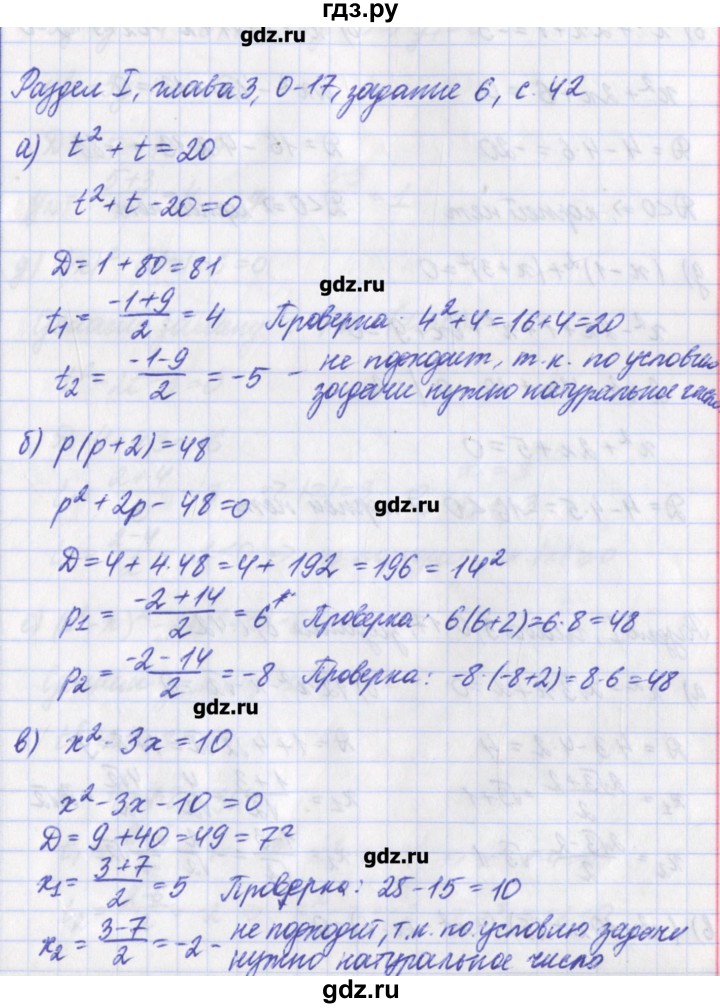 гдз.ру
gdz.ru
Раздел I, глава 3, О-17, задание 6, с. 42
а) t² + t = 20
t² + t - 20 = 0
gdz.ru
D = 1 + 80 = 81
gdz.ru
t₁ = (-1+9)/2 = 4 Проверка: 4² + 4 = 16 + 4 = 20
t₂ = (-1-9)/2 = -5 - не подходит, т.к. по условию
задачи нужно натуральное число.
б) p(p+2) = 48
p² + 2p - 48 = 0
gdz.ru
D = 4 + 4·48 = 4 + 192 = 196 = 14²
p₁ = (-2+14)/2 = 6 Проверка: 6(6+2) = 6·8 = 48
p₂ = (-2-14)/2 = -8 Проверка: -8·(-8+2) = 8·6 = 48
gdz.ru
в) x² - 3x = 10
x² - 3x - 10 = 0
D = 9 + 40 = 49 = 7²
gdz.ru
x₁ = (3+7)/2 = 5 Проверка: 25 - 15 = 10
x₂ = (3-7)/2 = -2 - не подходит, т.к. по условию задачи
нужно натуральное число
гдз.ру